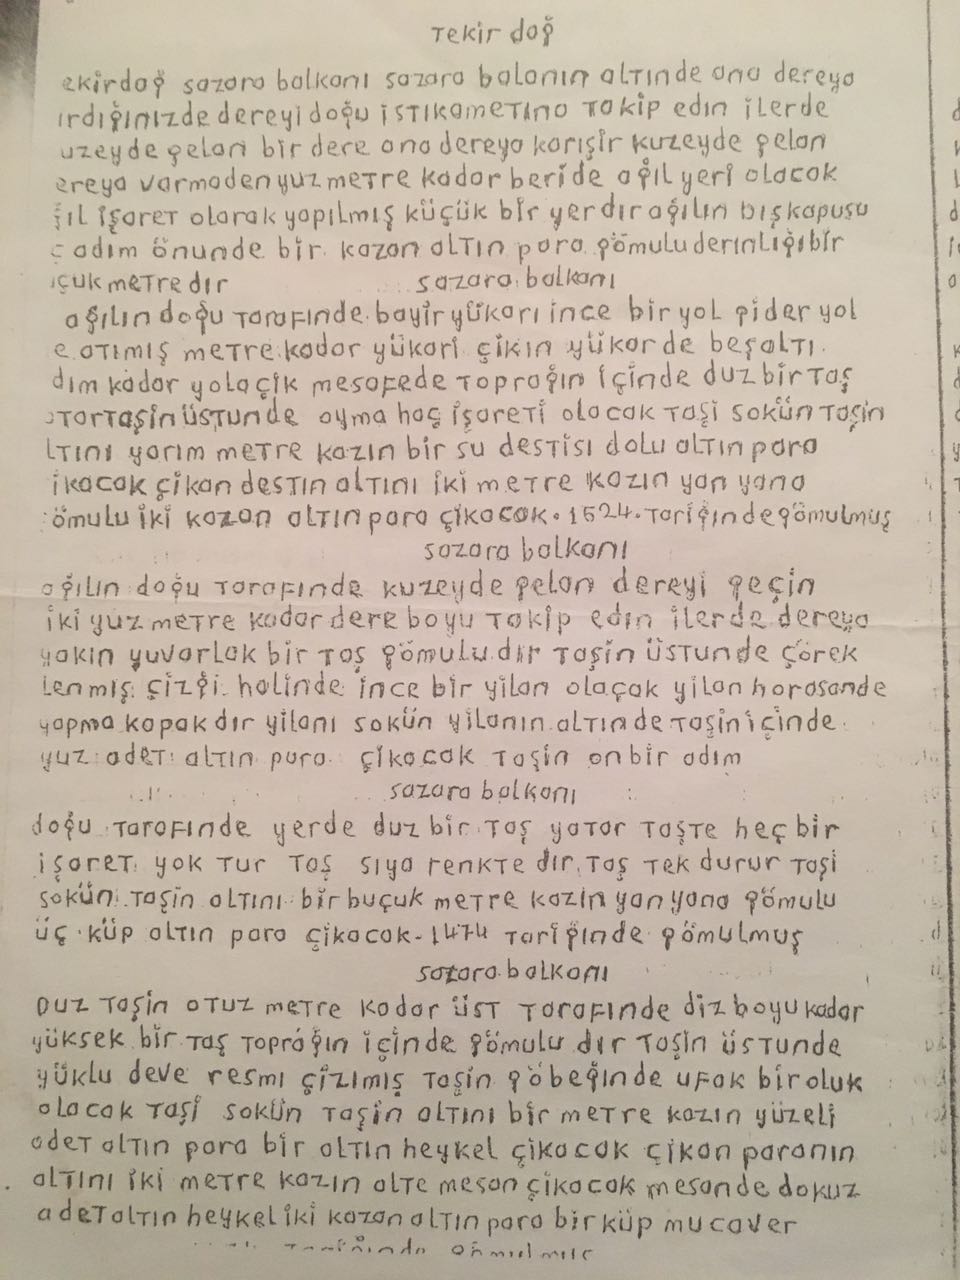 Tekir dağ
ekirdağ sazara balkanı sazara balanın altında ana dereya
ırdığınızde dereyi doğu istikametina takip edin ilerde
uzeyde gelan bir dere ana dereya karışir kuzeyde gelan
ereya varmaden yuz metre kadar beride ağıl yeri olacak
ğıl işaret olarak yapılmış küçük bir yerdir ağılın dışkapusu
ç adım önunde bir kazan altın para gömulu derinlığı bir
uçuk metre dır sazara balkanı
ağılın doğu tarafında bayir yükarı ince bir yol gider yol
e atımış metre kadar yükari çikın yükarde beşaltı
dım kadar yola çik mesafede toprağın içinde duz bir taş
atar taşin üstunde oyma haç işareti olacak taşi sokün taşin
ltını yarım metre kazın bir su destisı dolu altın para
ikacak çikan destın altını iki metre kazın yan yana
ömulu iki kazan altın para çikacak. 1524. tariğinde gömulmuş
sazara balkanı
ağılın doğu tarafında kuzeyde gelan dereyi geçin
iki yuz metre kadar dere boyu takip edin ilerde dereya
yakin yuvarlak bir taş gömulu dır taşin üstunde çörek
lenmiş çizgi halinde ince bir yilan olaçak yilan horasande
yapma kapak dır yilanı sokün yilanın altinde taşin içinde
yuz adet altın para çikacak taşin onbir adım
sazara balkanı
doğu tarafında yerde duz bir taş yatar taşte heç bir
işaret yok tur taş sıya renkte dır taş tek durur taşi
sokün taşin altını bir buçuk metre kazin yan yana gömulu
üç küp altın para çikacak. 1474 tariğinde gömulmuş
sazara balkanı
Duz taşin otuz metre kadar üst tarafında diz boyu kadar
yüksek bir taş toprağın içinde gömulu dır taşin üstunde
yüklu deve resmı çizımiş taşin göbeğinde ufak bir oluk
olacak taşi sokün taşin altını bir metre kazın yüzeli
adet altın para bir altın heykel çikacak çikan paranın
altını iki metre kazın alte mesan çikacak mesande dokuz
adet altın heykel iki kazan altın para bir küp mucaver